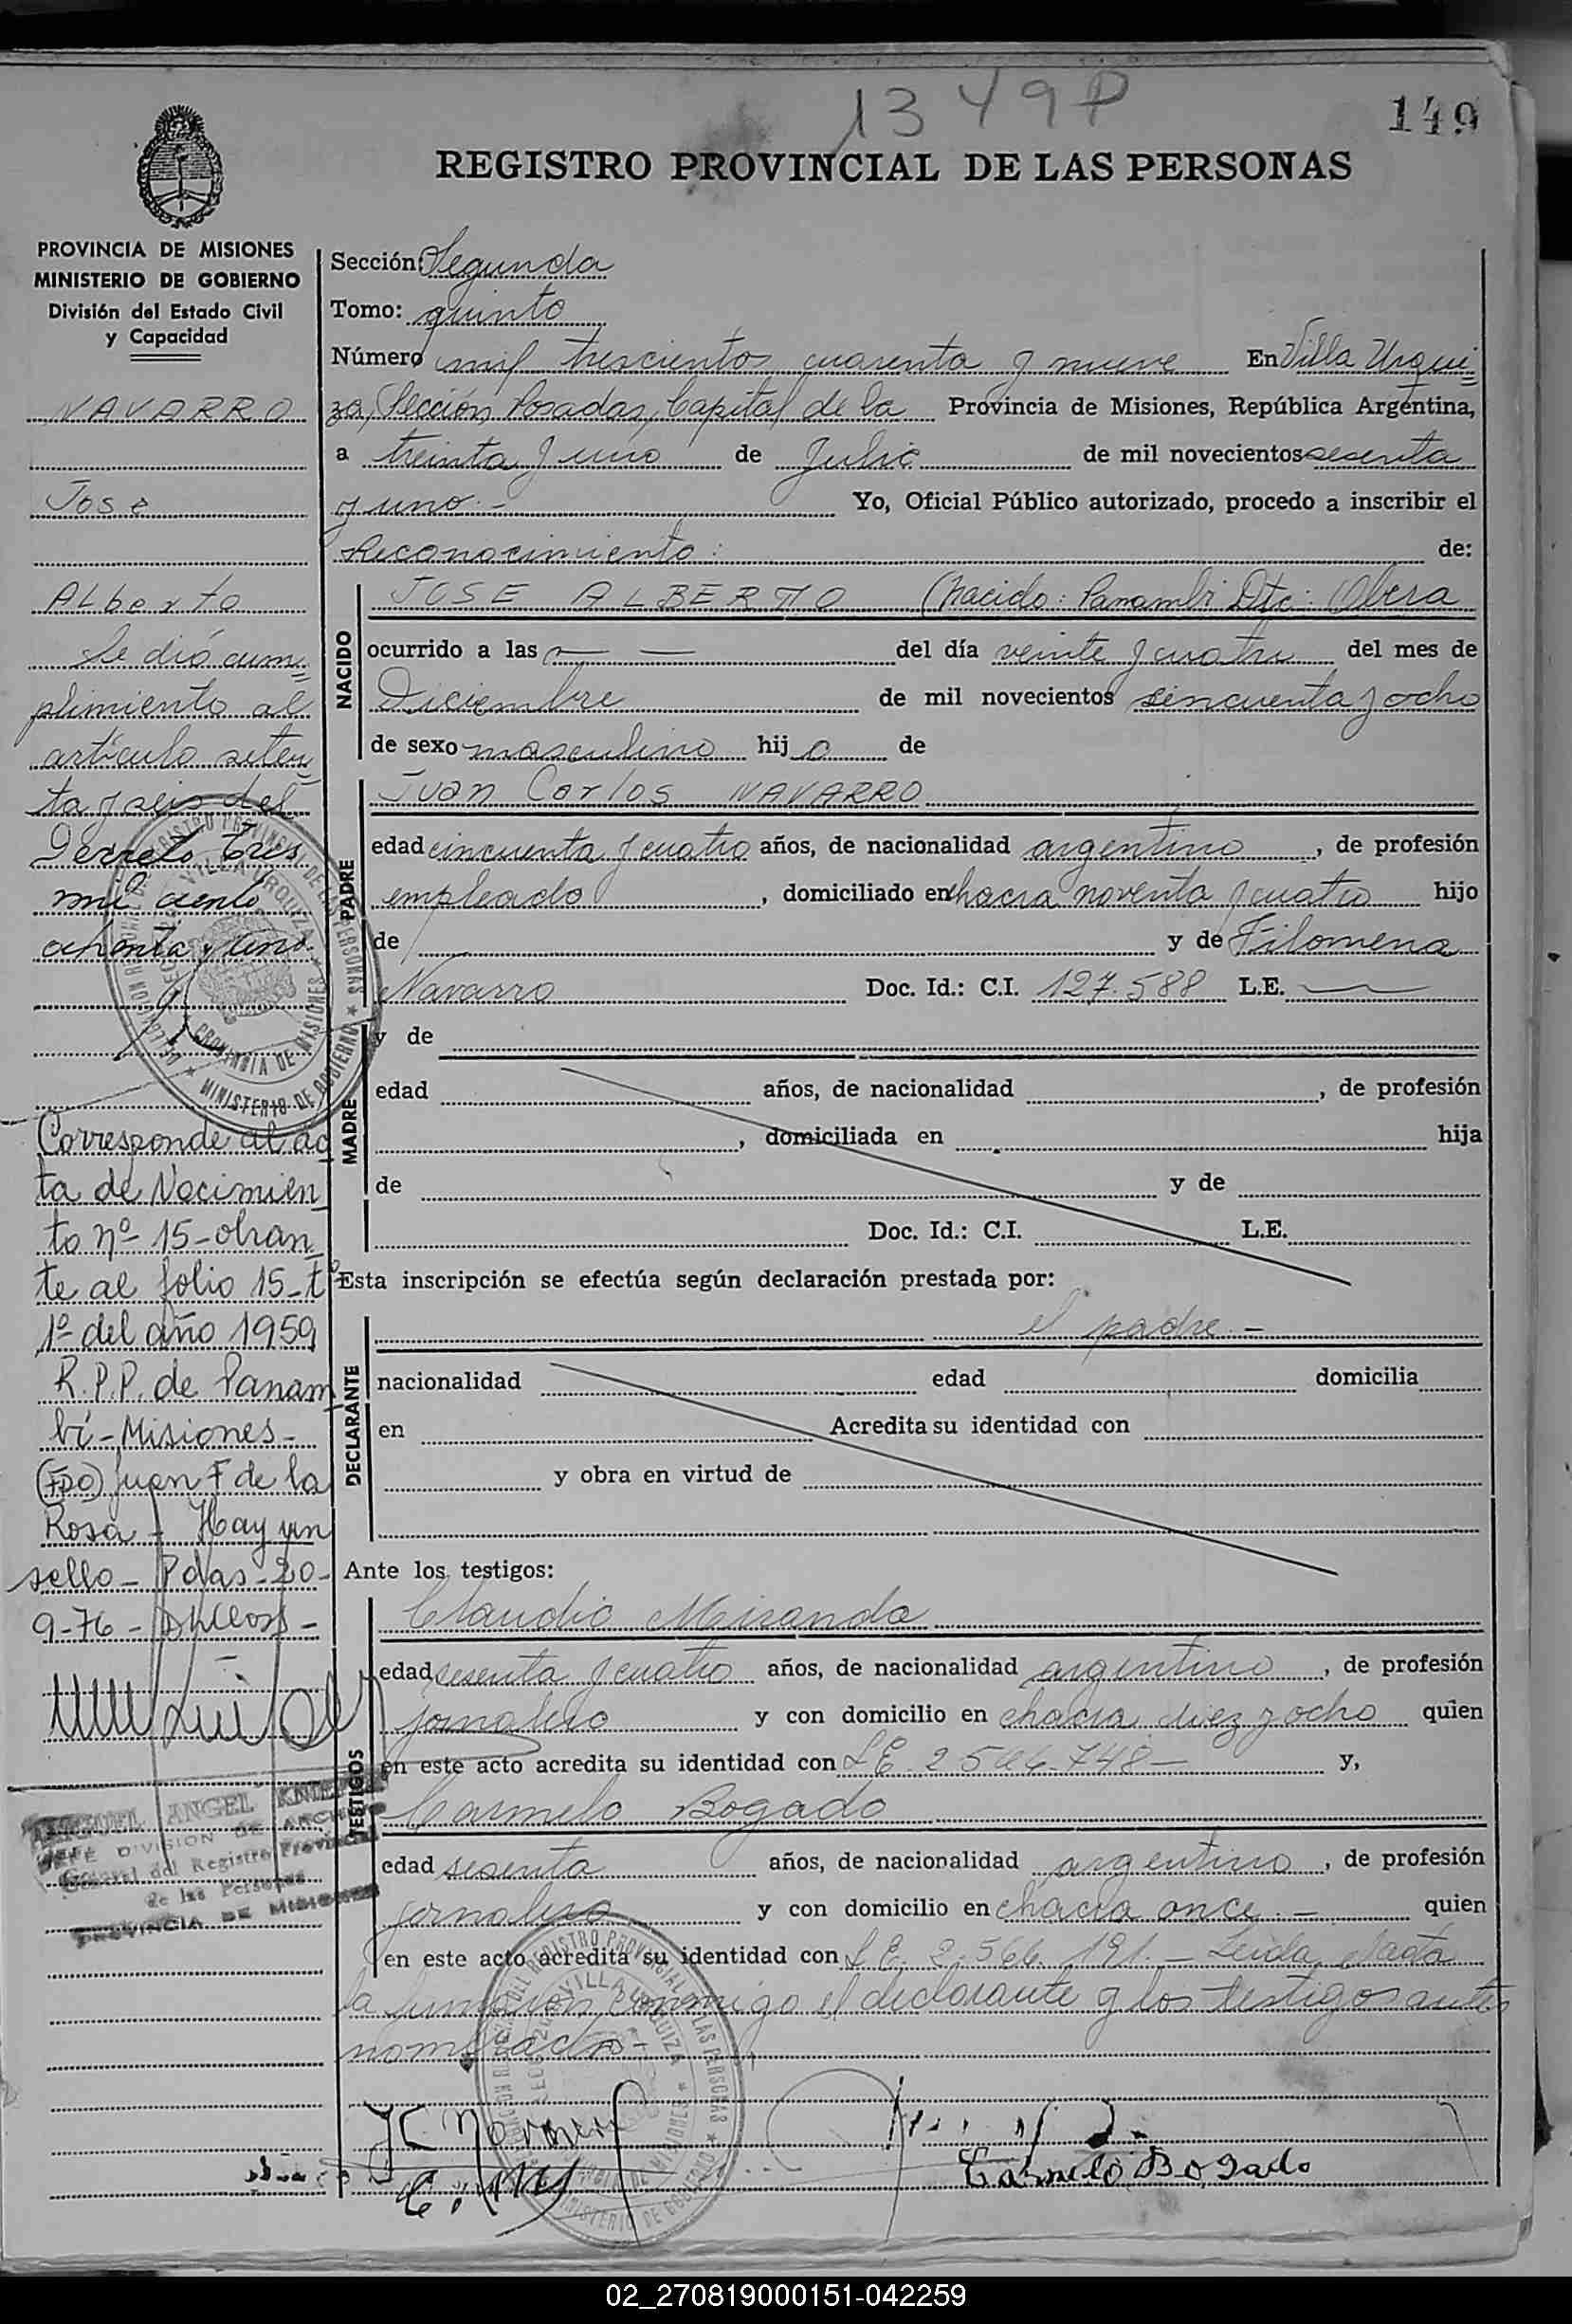 1349P
149
REGISTRO PROVINCIAL DE LAS PERSONAS
PROVINCIA DE MISIONES
MINISTERIO DE GOBIERNO
División del Estado Civil
y Capacidad
NAVARRO
Jose
Alberto
Se dió cum
plimiento al
artículo seten
ta y seis del
Decreto tres
mil ciento
ochenta y uno.
Corresponde al ac
ta de Nacimien
to nº 15-obran
te al folio 15-tº
1º del año 1959
R.P.P. de Panam
bí-Misiones-
(FDO) Juan F de la
Rosa - Hay un
sello- Pdas-20-
9-76-
MIGUEL ANGEL
JEFE DIVISION DE ARCHIVO
General del Registro Provincial
de las Personas
PROVINCIA DE MISIONES
Sección: Segunda
Tomo: quinto
Número mil trescientos cuarenta y nueve En Villa Urqui
za, Sección Posadas, Capital de la Provincia de Misiones, República Argentina,
a treinta y uno de Julio de mil novecientos sesenta
y uno.- Yo, Oficial Público autorizado, procedo a inscribir el
Reconocimiento: de:
NACIDO
JOSE ALBERTO (Nacido: Panambi Dto: Obera
ocurrido a las — — del día veinte y cuatro del mes de
Diciembre de mil novecientos sincuenta y ocho
de sexo masculino hijo de
PADRE
Juan Carlos NAVARRO
edad cincuenta y cuatro años, de nacionalidad argentino, de profesión
empleado, domiciliado en chacra noventa y cuatro hijo
de y de Filomena
Navarro Doc. Id.: C.I. 127.588 L.E. —
MADRE
y de
edad años, de nacionalidad , de profesión
, domiciliada en hija
de y de
Doc. Id.: C.I. L.E.
Esta inscripción se efectúa según declaración prestada por:
DECLARANTE
el padre.-
nacionalidad edad domicilia
en Acredita su identidad con
y obra en virtud de
Ante los testigos:
TESTIGOS
Claudio Miranda
edad sesenta y cuatro años, de nacionalidad argentino, de profesión
jornalero y con domicilio en chacra diez y ocho quien
en este acto acredita su identidad con L.E. 748- y,
Carmelo Bogado
edad sesenta años, de nacionalidad argentino, de profesión
jornalero y con domicilio en chacra once.- quien
en este acto acredita su identidad con L.E. 2.566.191.- Leida el acta
la firmaron conmigo el declarante y los testigos antes
nombrados-
J C Navarro
Carmelo Bogado
02_270819000151-042259